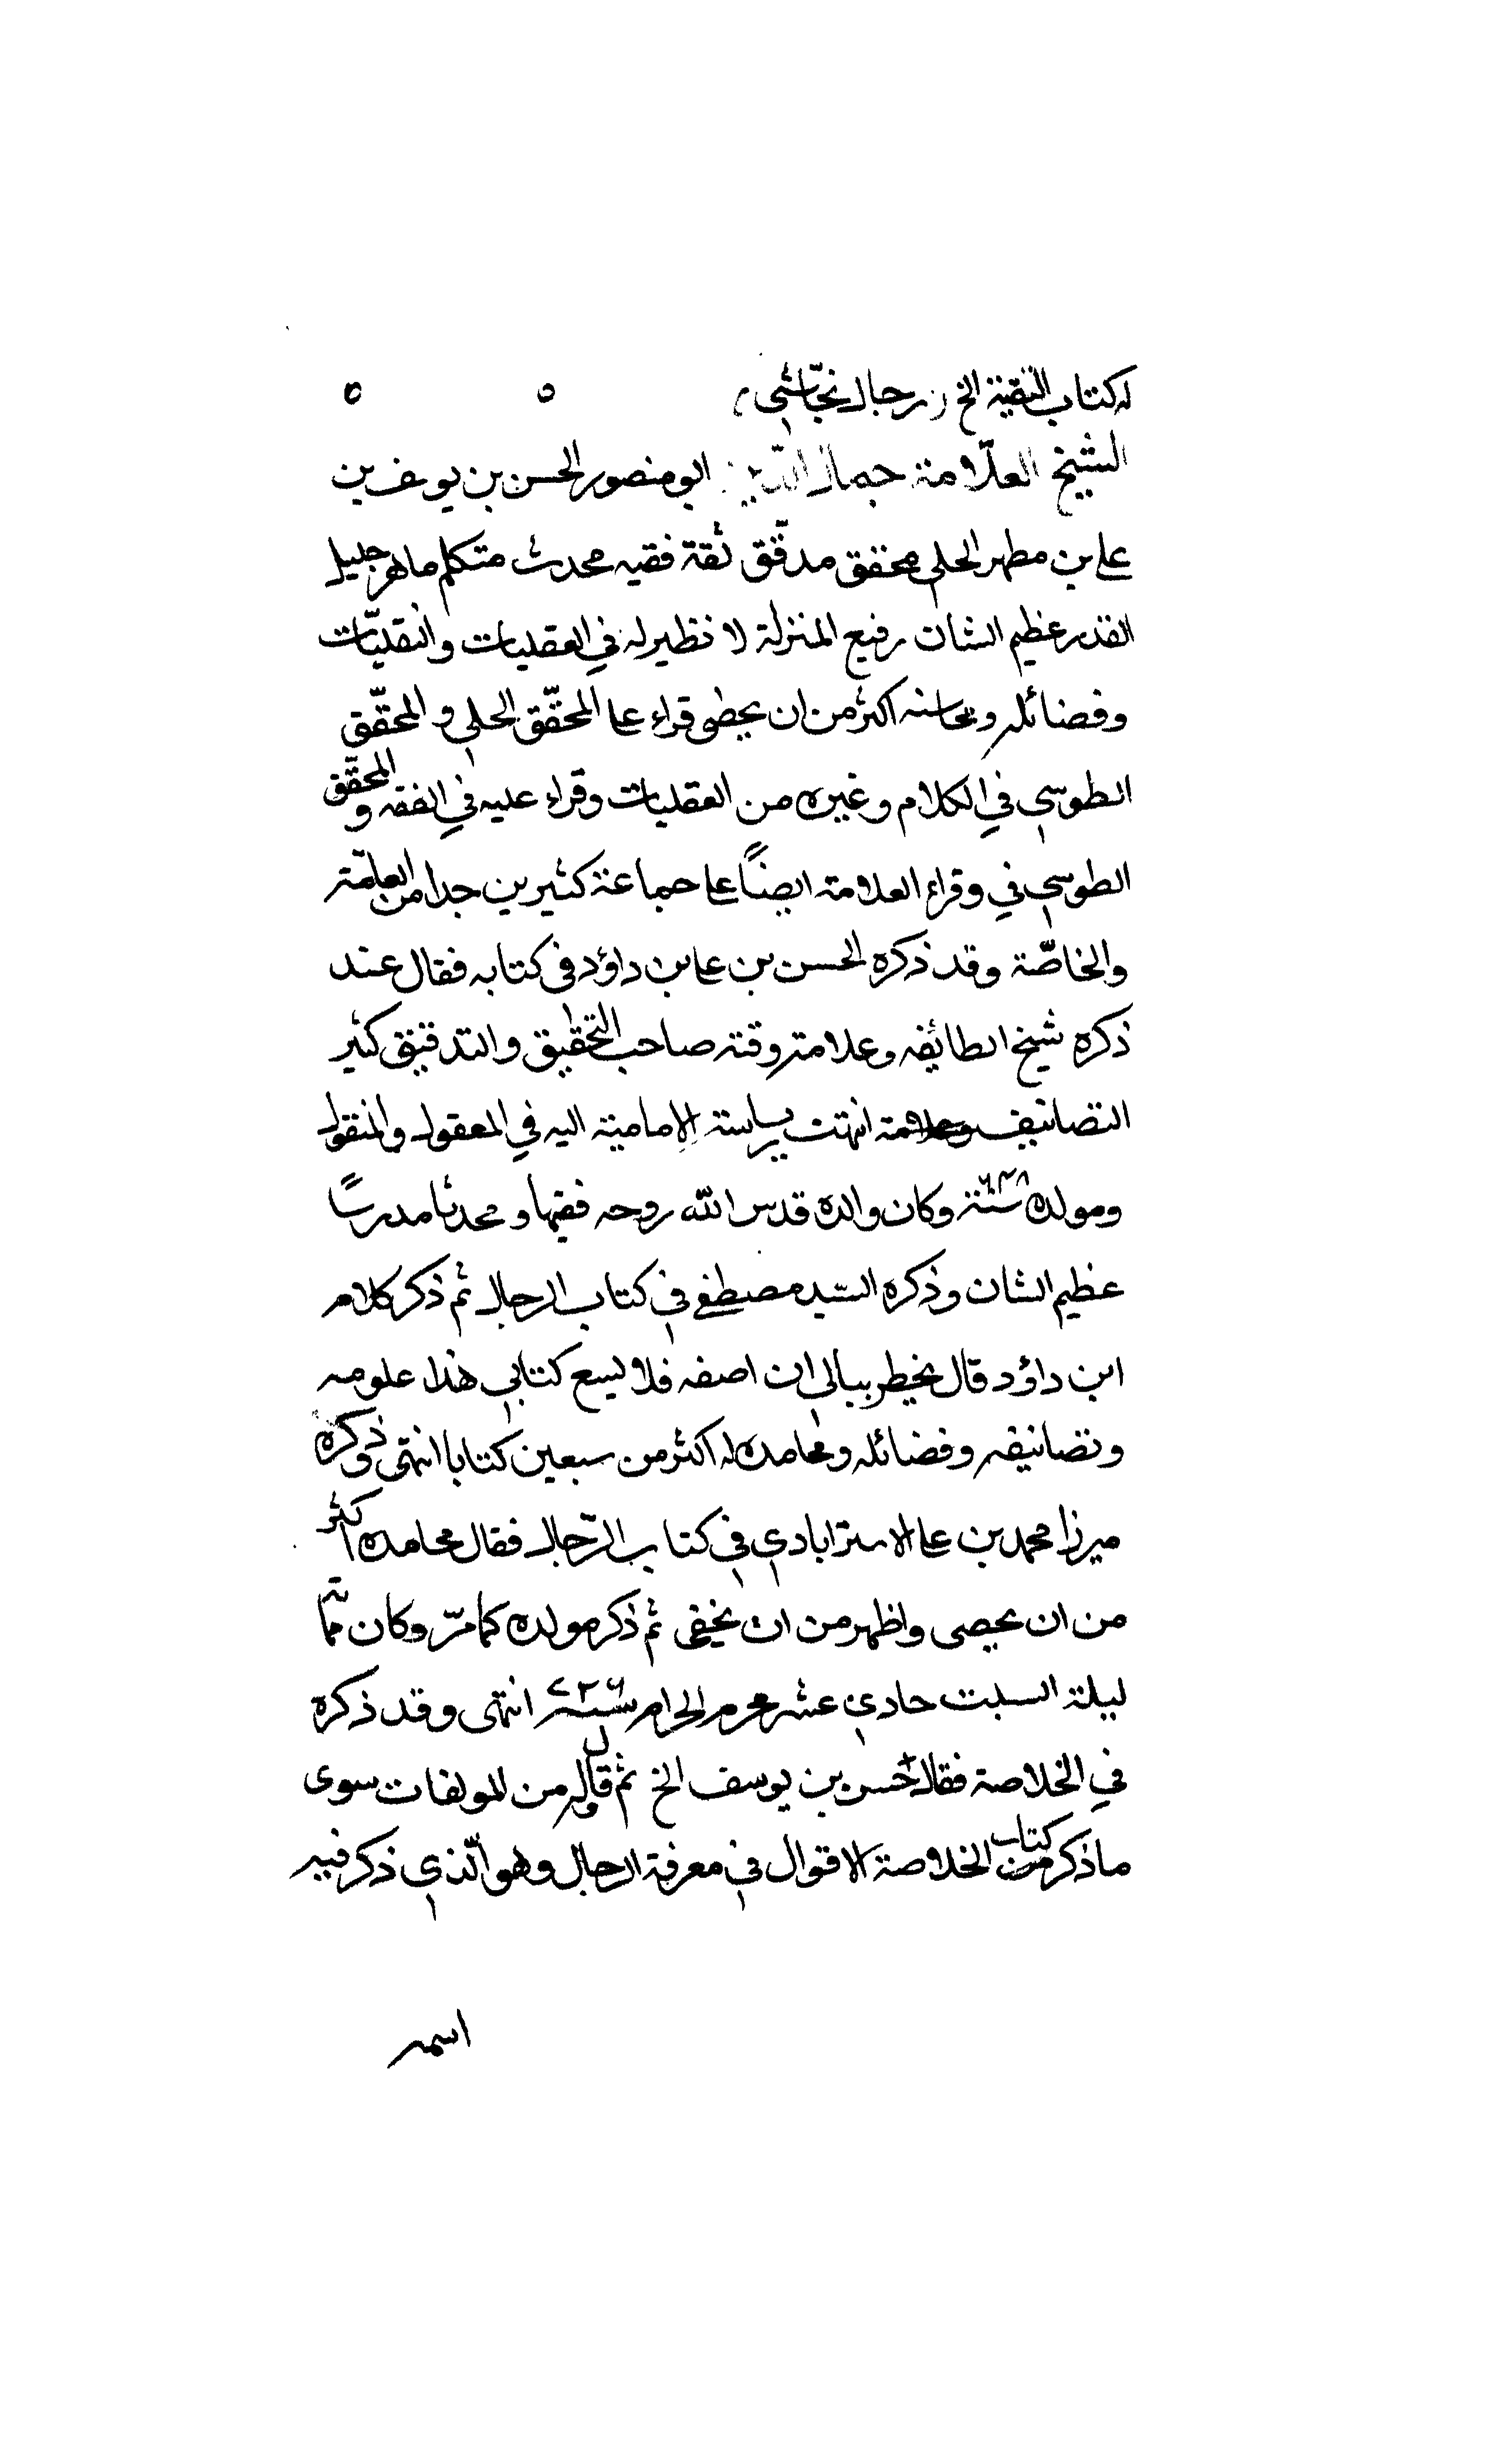 له كتاب التقية الخ رجال نجاشي
الشيخ العلّامة جمال الدين ابو منصور الحسن بن يوسف بن
علي بن مطهر الحلي محقق مدقّق ثقة فقيه محدث متكلم ماهر جليل
القدر عظيم الشان رفيع المنزلة لا نظير له في العقليات والنقليّات
وفضائله ومحاسنه اكثر من ان يحصى قراء على المحقّق الحلي و المحقّق
الطوسي في الكلام وغيره من العقليات وقراء عليه في الفقه و المحقّق
الطوسي في وقراء العلامة ايضاً على جماعة كثيرين جدا من العامّة
والخاصّة وقد ذكره الحسن بن علي بن داؤد في كتابه فقال عند
ذكره شيخ الطائفه وعلامة وقته صاحب التحقيق والتدقيق كثير
التصانيف انتهت رياسة الامامية اليه في المعقول والمنقول
ومولده سنة ٦٤٨ وكان والده قدس الله روحه فقيها و محدثا مدرساً
عظيم الشان وذكره السّيد مصطفى في كتاب الرجال ثم ذكر كلام
ابن داؤد قال يخطر ببالي ان اصفه فلا يسع كتابي هذا علومه
وتصانيفه وفضائله ومحامده له اكثر من سبعين كتابا انتهى وذكره
ميرزا محمد بن علي الاسترابادي في كتاب الرّجال فقال محامده اكثر
من ان يحصى واظهر من ان يخفى ثم ذكر مولده كما مرّ وكان مماته
ليلة السبت حادي عشر محرم الحرام سنة ٧٢٦ انتهى وقد ذكره
في الخلاصة فقال حسن بن يوسف الخ ثم قال وله من المولفات سوى
ما ذكر من كتاب الخلاصة الاقوال في معرفة الرجال وهو الّذي ذكر فيه
اسمه